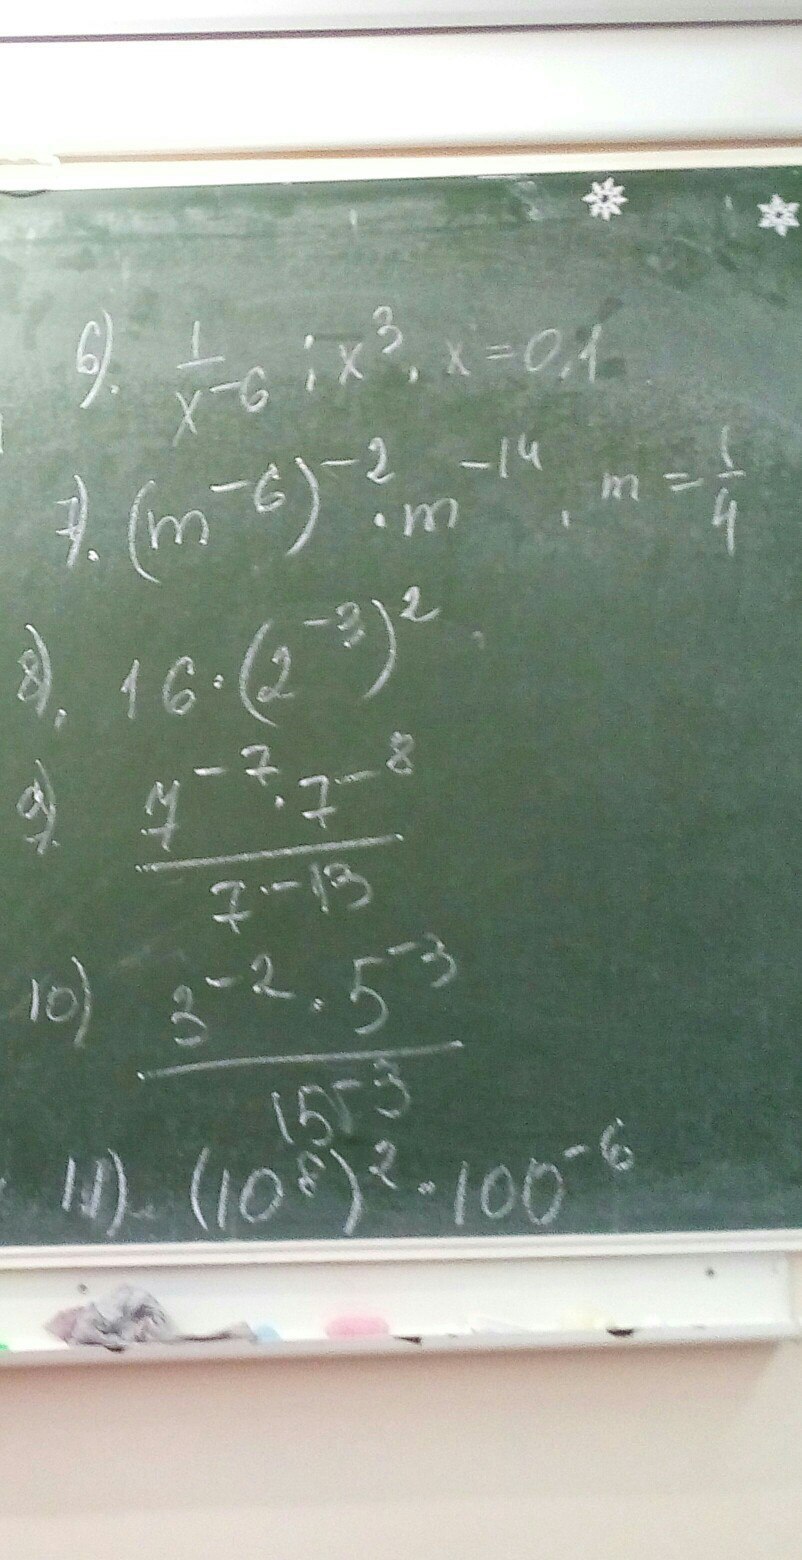 6). 1/x⁻⁶ : x³, x = 0,1
7). (m⁻⁶)⁻² · m⁻¹⁴, m = 1/4
8). 16 · (2⁻³)².
9) 7⁻⁷ · 7⁻⁸ / 7⁻¹³
10) 3⁻² · 5⁻³ / 15⁻³
11). (10⁸)² · 100⁻⁶